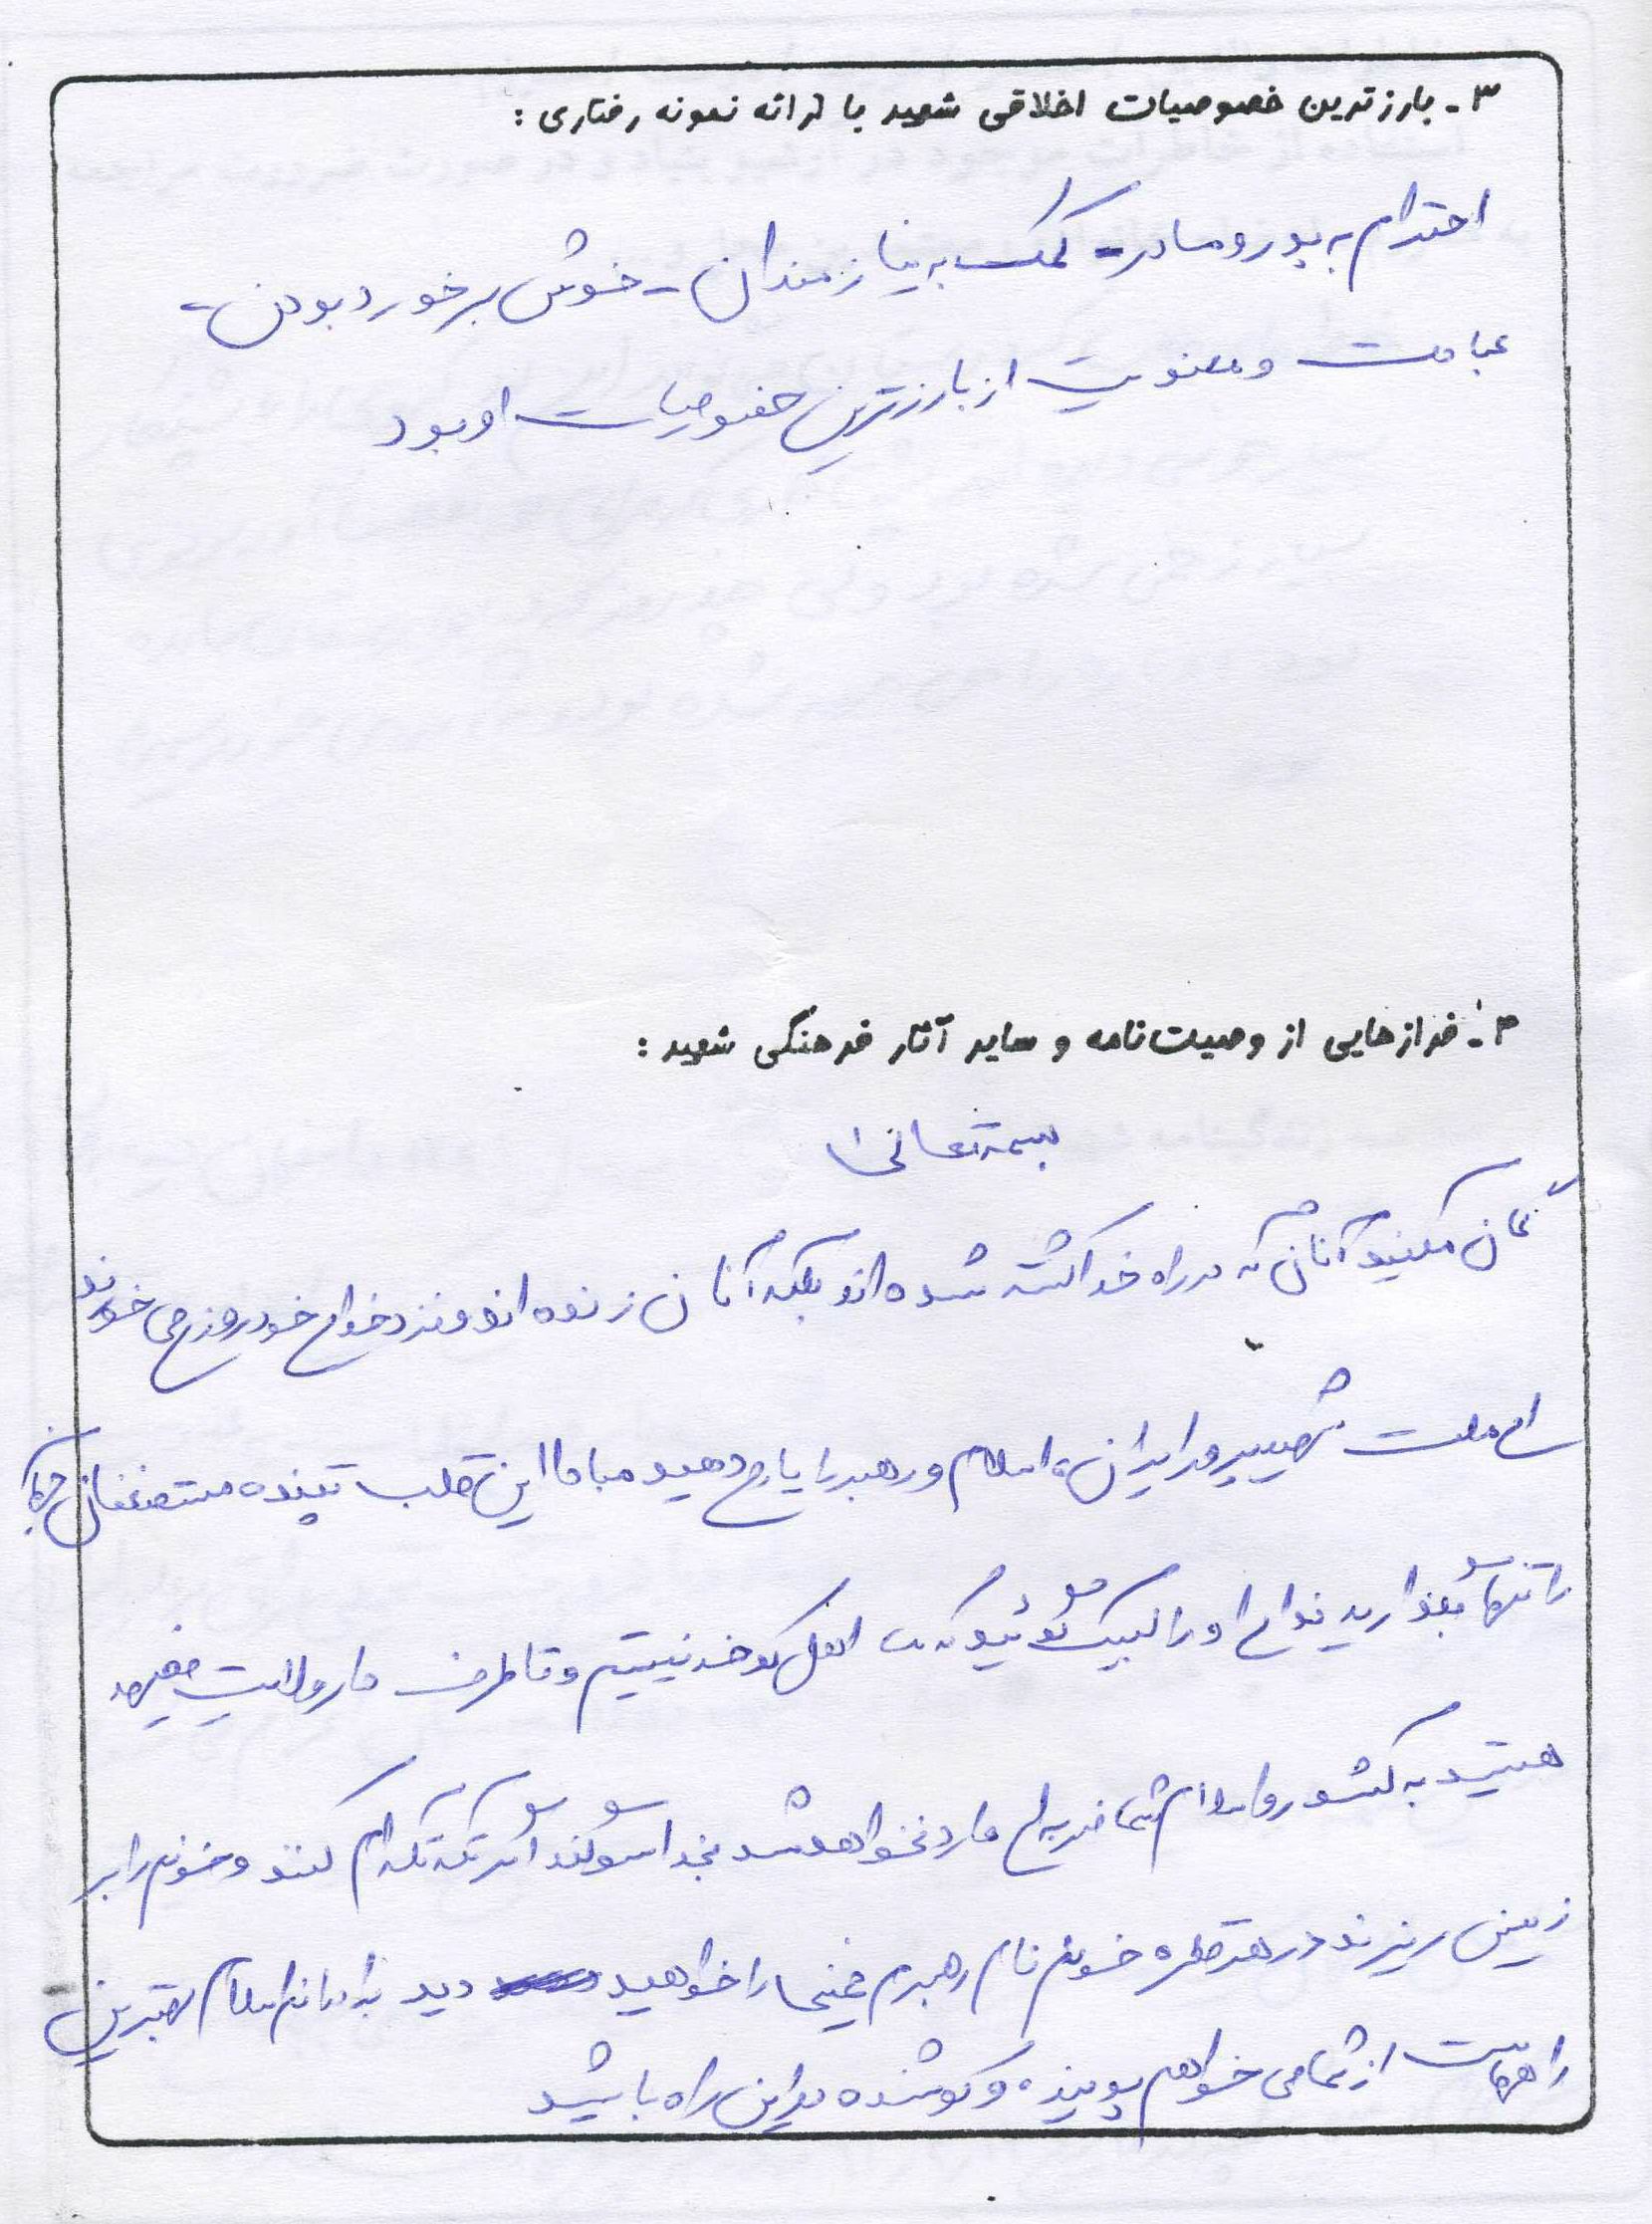 ۳- بارزترین خصوصیات اخلاقی شهید با ارائه نمونه رفتاری:
احترام به پدر و مادر - کمک به نیازمندان - خوش برخورد بودن -
عبادت و معنویت از بارزترین خصوصیات او بود
۴- فرازهایی از وصیت‌نامه و سایر آثار فرهنگی شهید:
بسمه تعالی
گمان مکنید آنان که در راه خدا کشته شده اند بلکه آنان زنده اند و نزد خدای خود روزی می خورند
ای ملت شهیدپرور ایران، اسلام و رهبر را یاری دهید مبادا این قلب تپنده مستضعفان جهان
را تنها بگذارید ندای او را لبیک گوئید که ما اهل کوفه نیستیم و تا طرف دار ولایت فقیه
هستید به کشور و اسلام شما ضربه ای وارد نخواهد شد بخدا سوگند اگر تکه تکه ام کنند و خونم را بر
زمین ریزند در هر قطره خونم نام رهبرم خمینی را خواهید دید راه اسلام بهترین
راههاست از شما می خواهم پوینده و کوشنده در این راه باشید